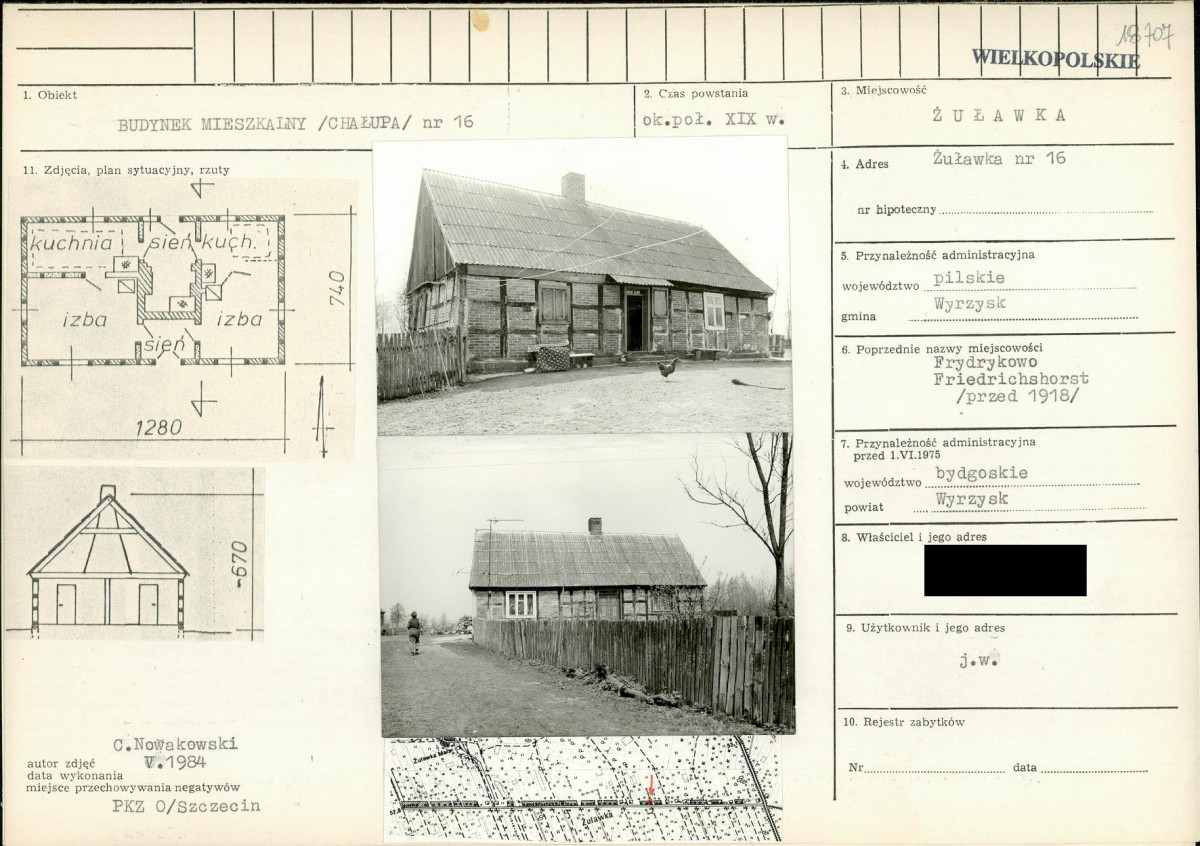 18707
WIELKOPOLSKIE
1. Obiekt
BUDYNEK MIESZKALNY /CHAŁUPA/ nr 16
2. Czas powstania
ok.poł. XIX w.
3. Miejscowość
ŻUŁAWKA
4. Adres
Żuławka nr 16
nr hipoteczny
5. Przynależność administracyjna
województwo pilskie
gmina Wyrzysk
6. Poprzednie nazwy miejscowości
Frydrykowo
Friedrichshorst
/przed 1918/
7. Przynależność administracyjna
przed 1.VI.1975
województwo bydgoskie
powiat Wyrzysk
8. Właściciel i jego adres
9. Użytkownik i jego adres
j.w.
10. Rejestr zabytków
Nr data
11. Zdjęcia, plan sytuacyjny, rzuty
kuchnia sień kuch.
izba izba
sień
740
1280
~670
C.Nowakowski
autor zdjęć
V.1984
data wykonania
miejsce przechowywania negatywów
PKZ O/Szczecin
Żuławka